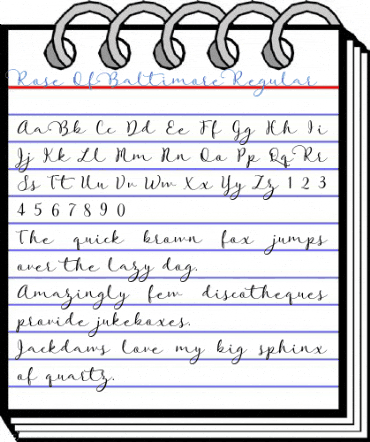 Rose Of Baltimore Regular
Aa Bb Cc Dd Ee Ff Gg Hh Ii
Jj Kk Ll Mm Nn Oo Pp Qq Rr
Ss Tt Uu Vv Ww Xx Yy Zz 1 2 3
4 5 6 7 8 9 0
The quick brown fox jumps
over the lazy dog.
Amazingly few discotheques
provide jukeboxes.
Jackdaws love my big sphinx
of quartz.